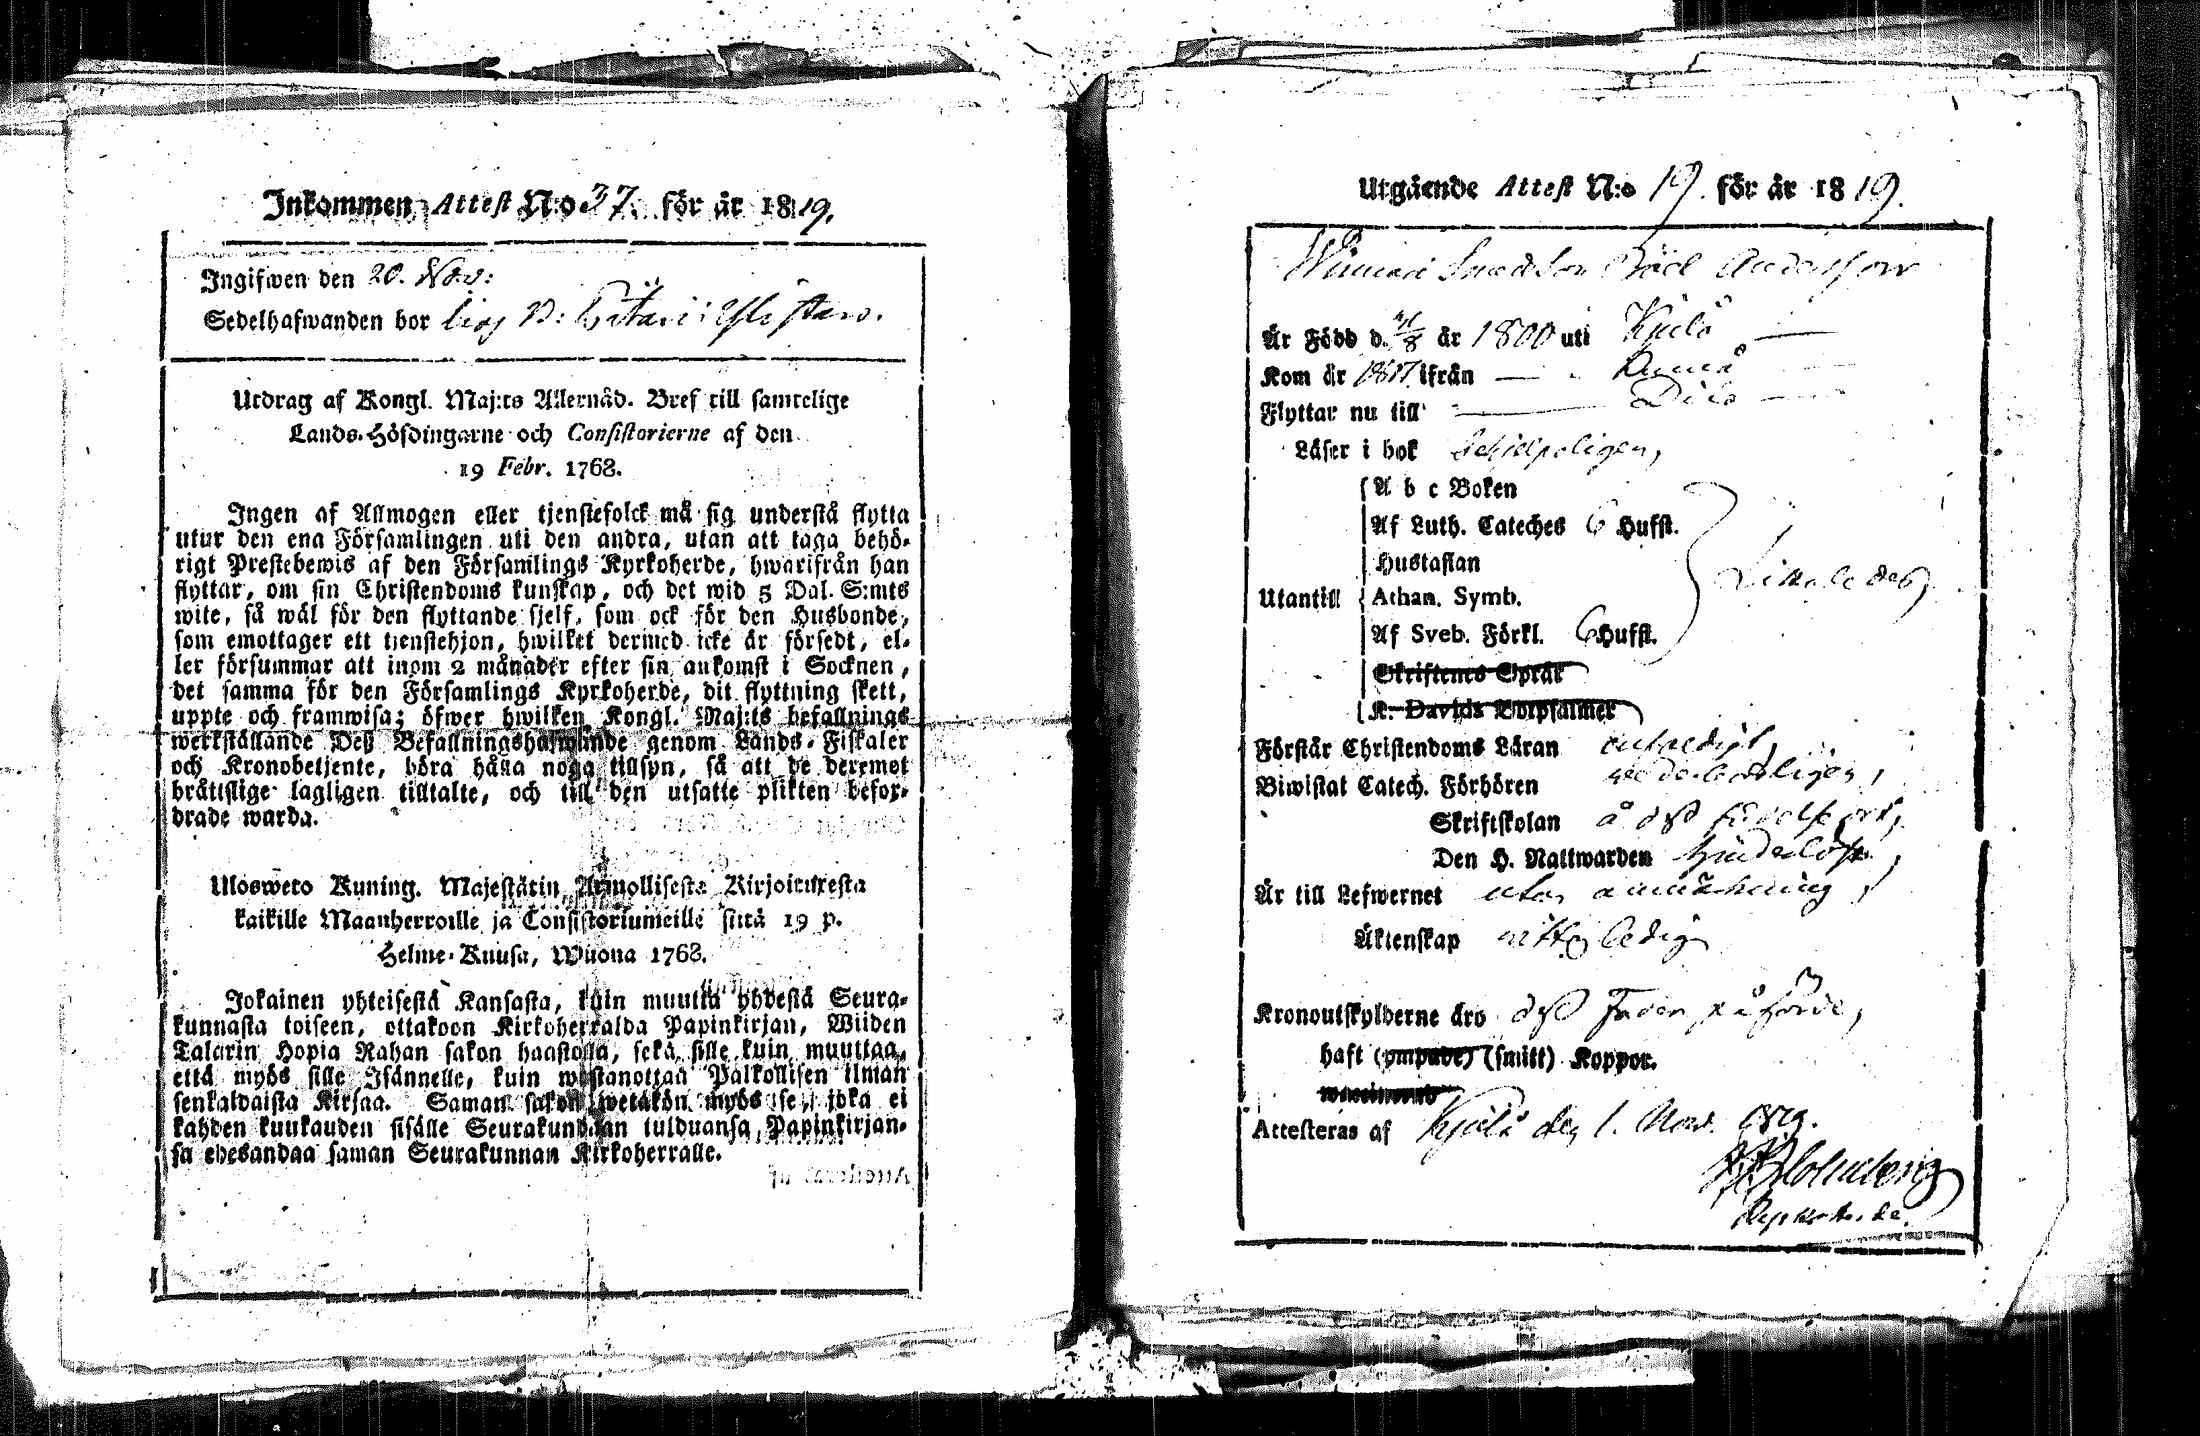 Inkommen Attest N:o 37. för år 1819.
Ingifwen den 20. Nov:
Sedelhafwanden bor hos
Utdrag af Kongl. Maj:ts Allernåd. Bref till samtelige
Lands-Höfdingarne och Consistorierne af den
19 Febr. 1768.
Ingen af Allmogen eller tjenstefolck må sig understå flytta
utur den ena Församlingen uti den andra, utan att taga behö-
rigt Prestebewis af den Församlings Kyrkoherde, hwarifrån han
flyttar, om sin Christendoms kunskap, och det wid 5 Dal. S:mts
wite, så wäl för den flyttande sjelf, som ock för den Husbonde,
som emottager ett tienstehjon, hwilket dermed icke är försedt, el-
ler försummar att inom 2 månader efter sin ankomst i Socknen,
det samma för den Församlings Kyrkoherde, dit flyttning skett,
uppte och framwisa; öfwer hwilken Kongl. Maj:ts befallnings
werkställande Deß Befallningshafwande genom Lands-Fiskaler
och Kronobetjente, böra hålla noga tillsyn, så att de deremot
bråttslige lagligen tilltalte, och till den utsatte plikten befor-
drade warda.
Ulosweto Kuning. Majestätin Armollisesta Kirjoituxesta
kaikille Maanherroille ja Consistoriumeille siitä 19 p.
Helme-Kuusa, Wuona 1768.
Jokainen yhteisestä Kansasta, kuin muutta yhdestä Seura-
kunnasta toiseen, ottakoon Kirkoherralda Papinkirjan, Wiiden
Talarin Hopia Rahan sakon haastolla, sekä sille kuin muuttaa,
että myös sille Isännelle, kuin wastanottaa Palkollisen ilman
senkaldaista Kirjaa. Saman sakon wetäkön myös se, joka ei
kahden kuukauden sisälle Seurakundaan tulduansa Papinkirjan-
sa edesandaa saman Seurakunnan Kirkoherralle.
Utgående Attest N:o 19. för år 1819.
Andersson
Är Född d. år 1800 uti Kjulo
Kom år ifrån
Flyttar nu till
Läser i bok
A b c Boken
Af Luth. Cateches 6 Hufst.
Hustaflan
Utantill Athan. Symb.
Af Sveb. Förkl. 6 Hufst.
Skriftenes Språk
K. Davids Botpsalmer
Förstår Christendoms Läran
Biwistat Catech. Förhören
Skriftskolan
Den H. Nattwarden
Är till Lefwernet utan anmärkning,
Äktenskap ledig
Kronoutskylderne äro
haft (ympade) (smitt) Koppor.
Attesteras af Kjulo den 1. Nov. 1819.